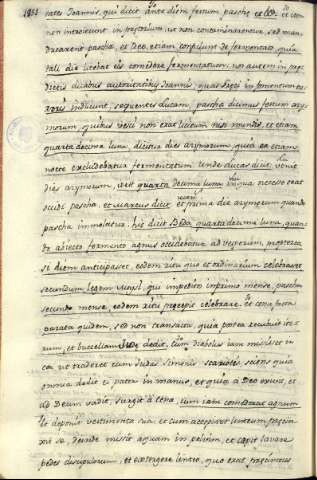 tates Joannis, qui dicit ante diem festum pasche et
non introierunt in pretorium ut non contaminarentur, sed man
ducarent pascha, et Deo etiam corpus de fermentato, quia
tali die licebat eis comedere fermentatum, non autem in
dictis duabus autoritatibus Joannis, quas sepe in fomentum er
roris inducunt, sequentes ducam, pascha dicimus festum azy
morum, quibus vesci non erat licitum nisi mundis, et etiam
quarta decima luna, dicitur dies azymorum, quia ea etiam
nocte excludebatur fermentatum. Unde Lucas dicit, venit
dies azymorum, quarta decima luna in qua necesse erat
occidi pascha. et Marcus dicit et prima die azymorum quando
pascha immolatur. hic dicit Beda quarta decima luna, quan
do abiecto formento agnus occidebatur ad vesperum, propterea
si diem anticipasset, eodem ritu quo et ordinarium celebrasset
secundum legem qui impeditos in primo mense, pascha
secundo mense, eodem ritu precepit celebrare. et cena facta
parata quidem, sed non transacta, quia postea recubuit ite
rum, et bucellam Jude dedit. Cum diabolus iam misisset in
cor ut traderet eum Judas Simonis Scariotis, sciens quia
omnia dedit ei pater in manus, et quia a Deo exivit, et
ad Deum vadit, surgit a cena, cum iam comederat agnum
et deponit vestimenta sua. et cum accepisset linteum precin
xit se, deinde misit aquam in pelvim, et cepit lavare
pedes discipulorum, et extergere linteo, quo erat precinctus